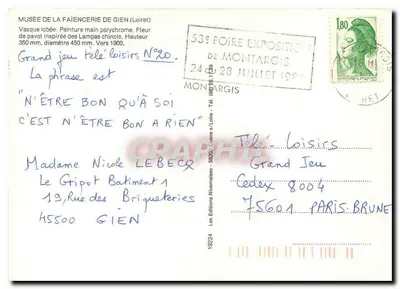 MUSÉE DE LA FAIENCERIE DE GIEN (Loiret)
Vasque lobée. Peinture main polychrome. Fleur
de pavot inspirée des Lampas chinois. Hauteur
350 mm, diamètre 450 mm. Vers 1900.
Grand jeu télé loisirs N°20.
La phrase est
"N'ÊTRE BON QU'À SOI
C'EST N'ÊTRE BON A RIEN"
Madame Nicole LEBECQ
Le Gripot Batiment 1
19, Rue des Briqueteries
45500 GIEN
19224 Les Editions Nivernaises
53e FOIRE EXPOSITION
DE MONTARGIS
24 au 28 JUILLET
MONTARGIS
1,80
Télé Loisirs
Grand Jeu
Cedex 8004
75601 PARIS-BRUNE
CPAPHIL